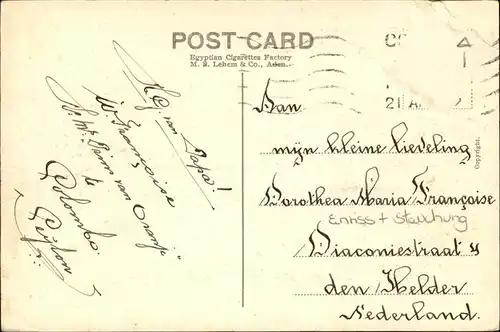 POST CARD
Egyptian Cigarettes Factory
M. S. Lehem & Co., Aden.
21
H.G. van Papa!
S. Mt. Prins van Oranje
te
Colombo
Ceylon
Aan
mijn kleine lieveling
Dorothea Maria Françoise
Einriss + Stauchung
Diaconiestraat 4
den Helder
Nederland.
Copyright.